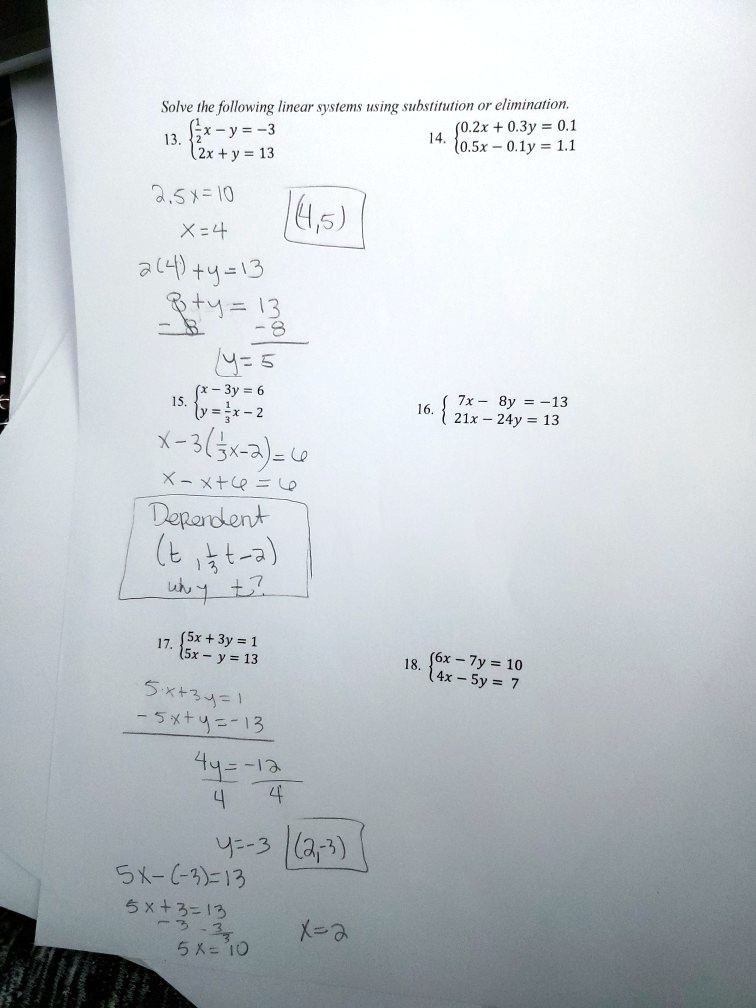 Solve the following linear systems using substitution or elimination.
13. { 1/2 x − y = −3
2x + y = 13
14. { 0.2x + 0.3y = 0.1
0.5x − 0.1y = 1.1
2.5x = 10
x = 4
(4,5)
2(4) + y = 13
8 + y = 13
− 8 − 8
y = 5
15. { x − 3y = 6
y = 1/3 x − 2
16. { 7x − 8y = −13
21x − 24y = 13
x − 3(1/3 x − 2) = 6
x − x + 6 = 6
Dependent
(t, 1/3 t − 2)
why t?
17. { 5x + 3y = 1
5x − y = 13
18. { 6x − 7y = 10
4x − 5y = 7
5x + 3y = 1
− 5x + y = −13
4y = −12
4 4
y = −3
(2,−3)
5x − (−3) = 13
5x + 3 = 13
− 3 − 3
5x = 10
x = 2